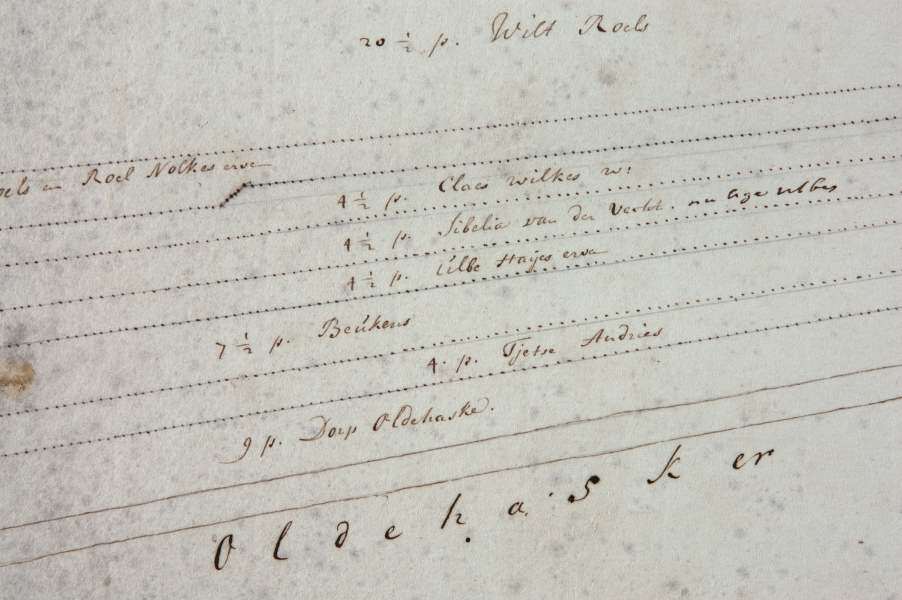 20 ½ p. Wilt Roels
Roel Nolkes erven
4 ½ p. Claes wilkes w:
4 ½ p. Sibelia van der Vecht. nu
4 ½ p. Ulbe Hayes erven
7 ½ p. Beúkens
4. p. Tjetse Andries
9 p. Dorp Oldehaske.
Oldehasker